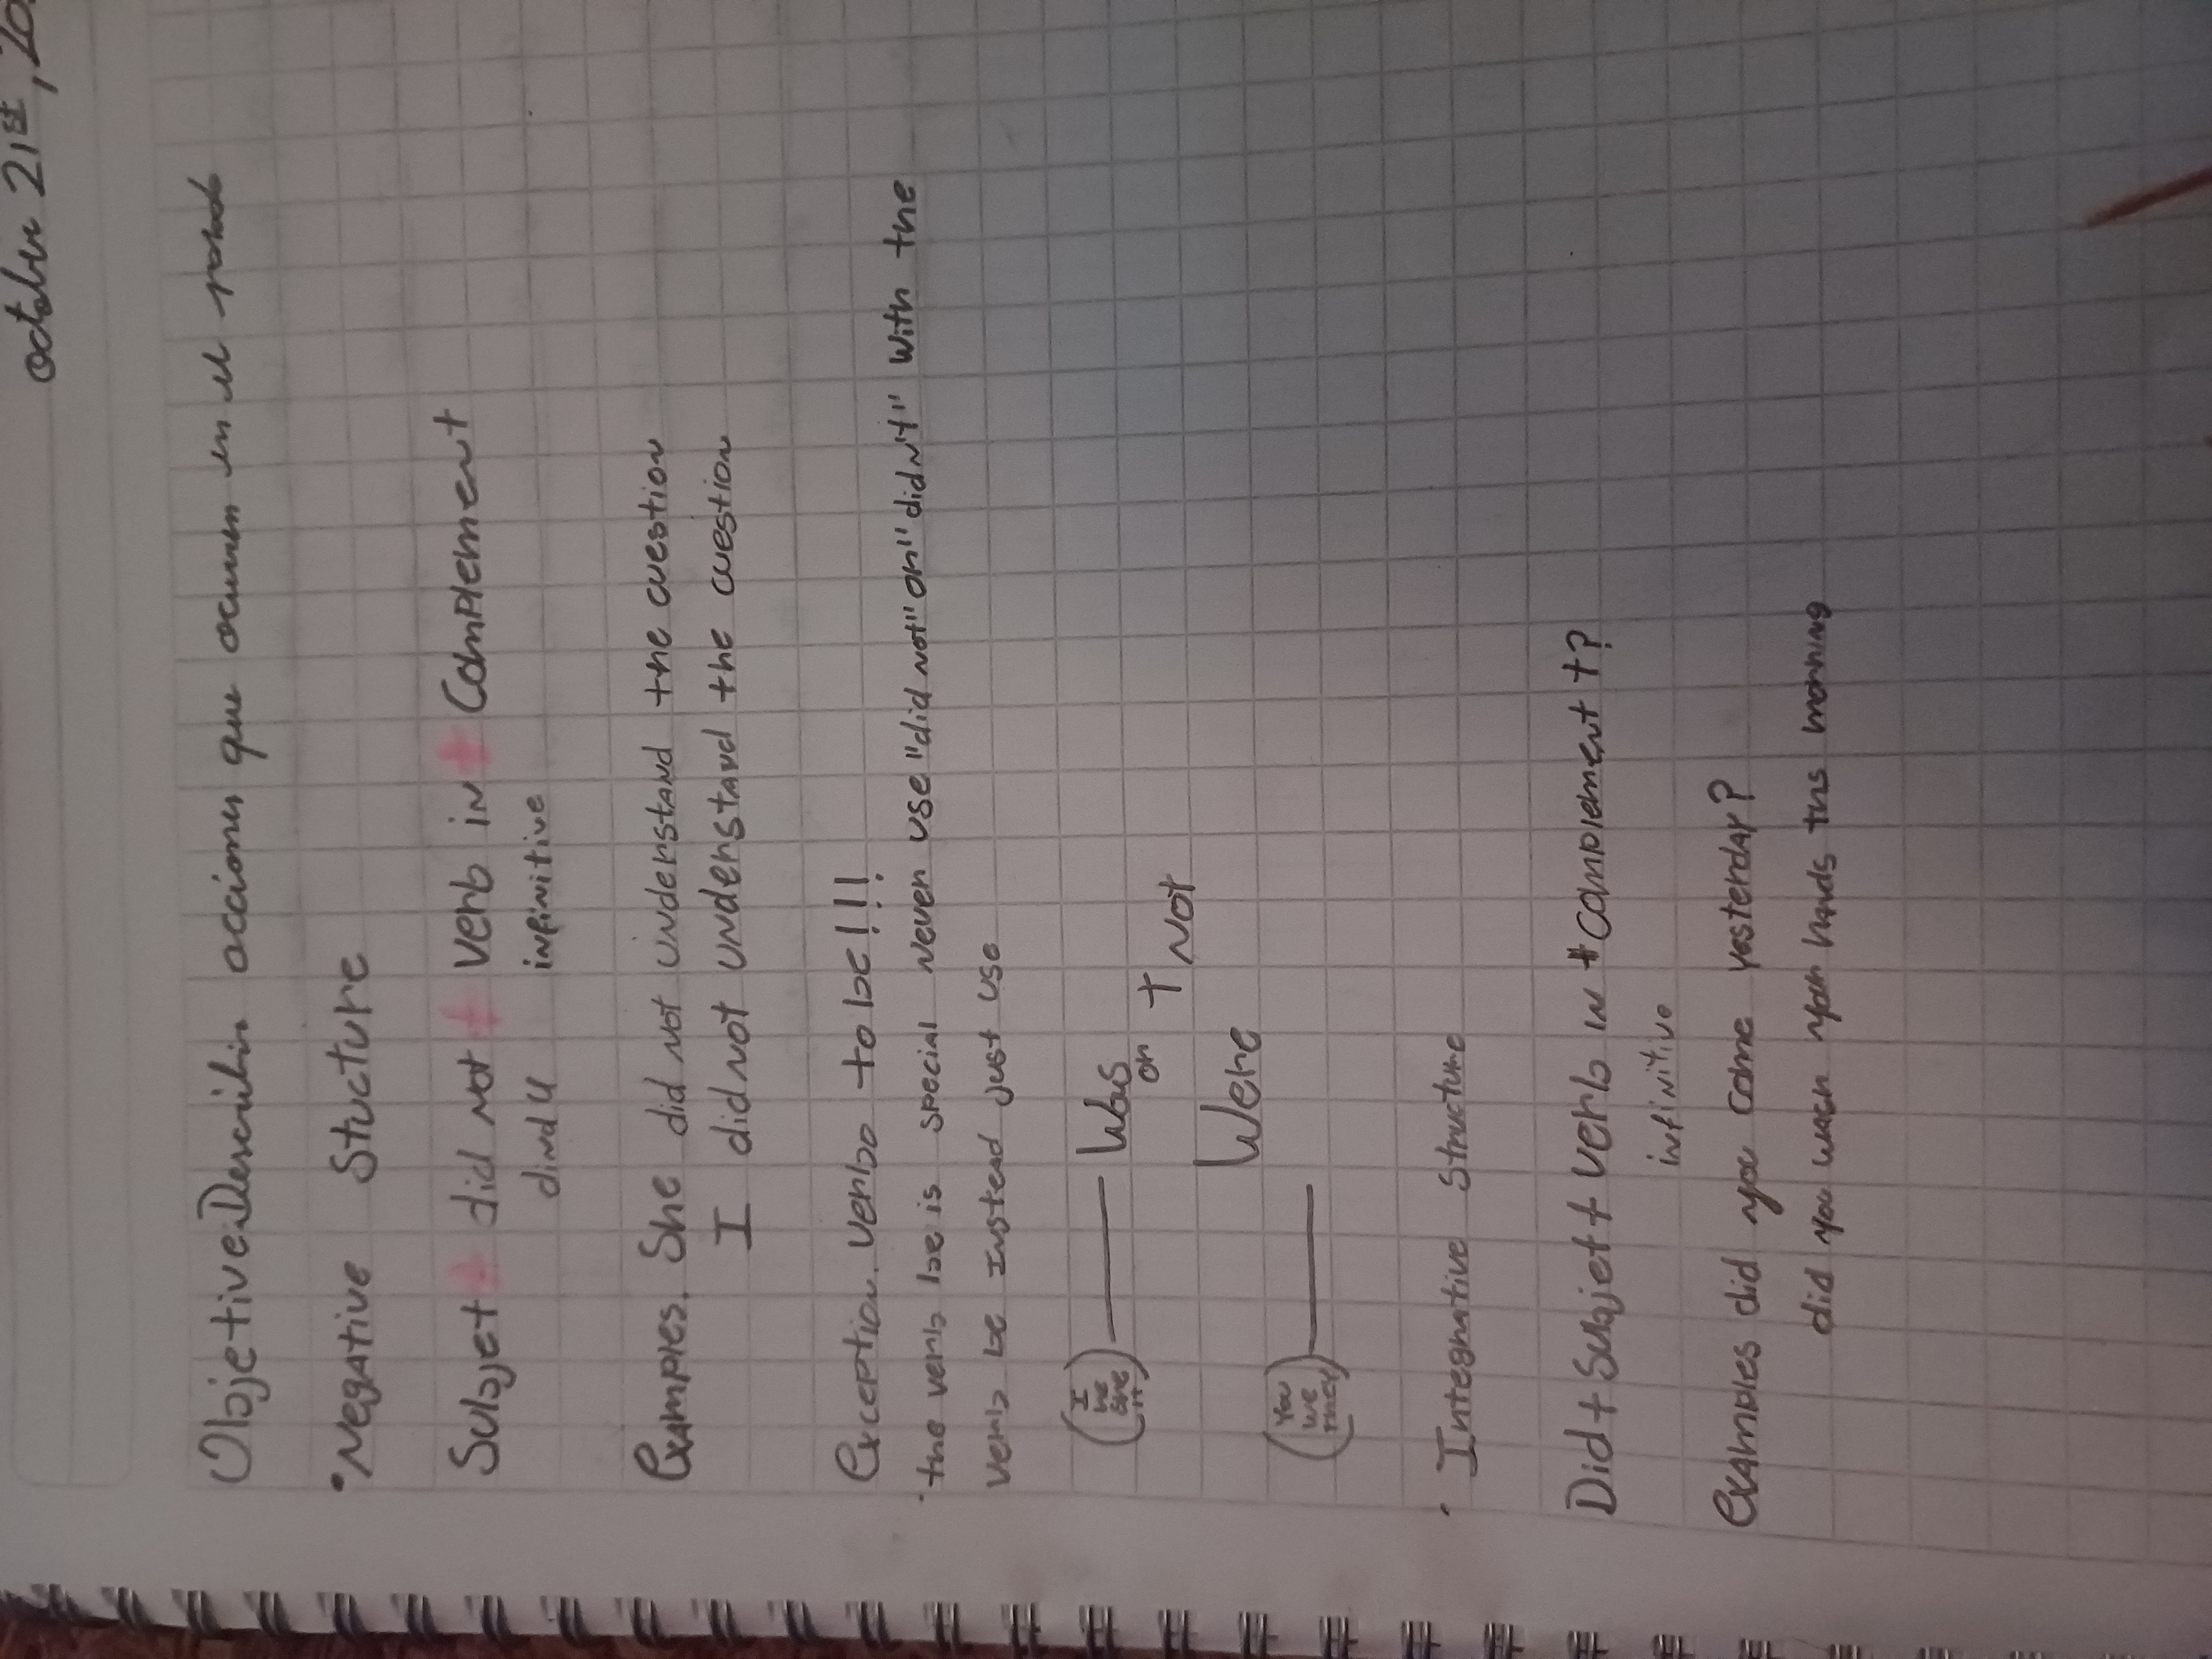 October 21st, 20
Objetive. Describir acciones que ocurren en el pasado
•Negative Stucture
Subjet + did not + verb in + Complement
infinitive
Examples. She did not understand the cuestion
I did not understand the cuestion
Exception. verbo to be!!!
·the verb be is special never use "did not" or "didn't" with the
verb be Instead just use
I
he
she
it
Was
or + Not
Were
You
we
they
· Integrative Structure
Did + Subjet + verb in + complement + ?
infinitive
Examples did you come yesterday?
did you wash your hands ths morning